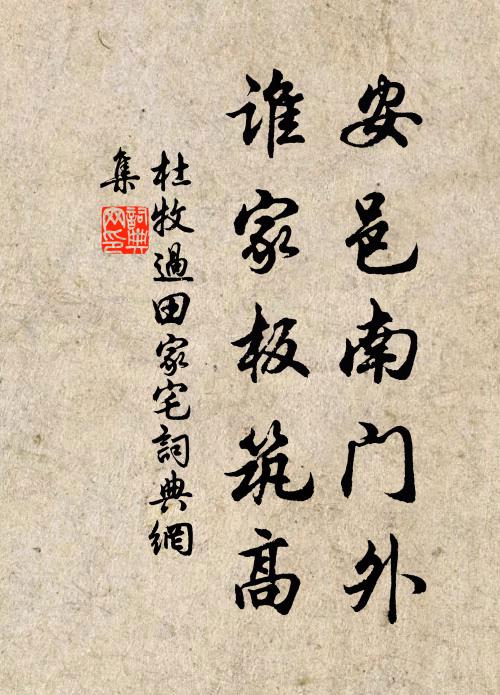 安邑南门外
谁家板筑高
杜牧過田家宅詞典網
集
詞典网印